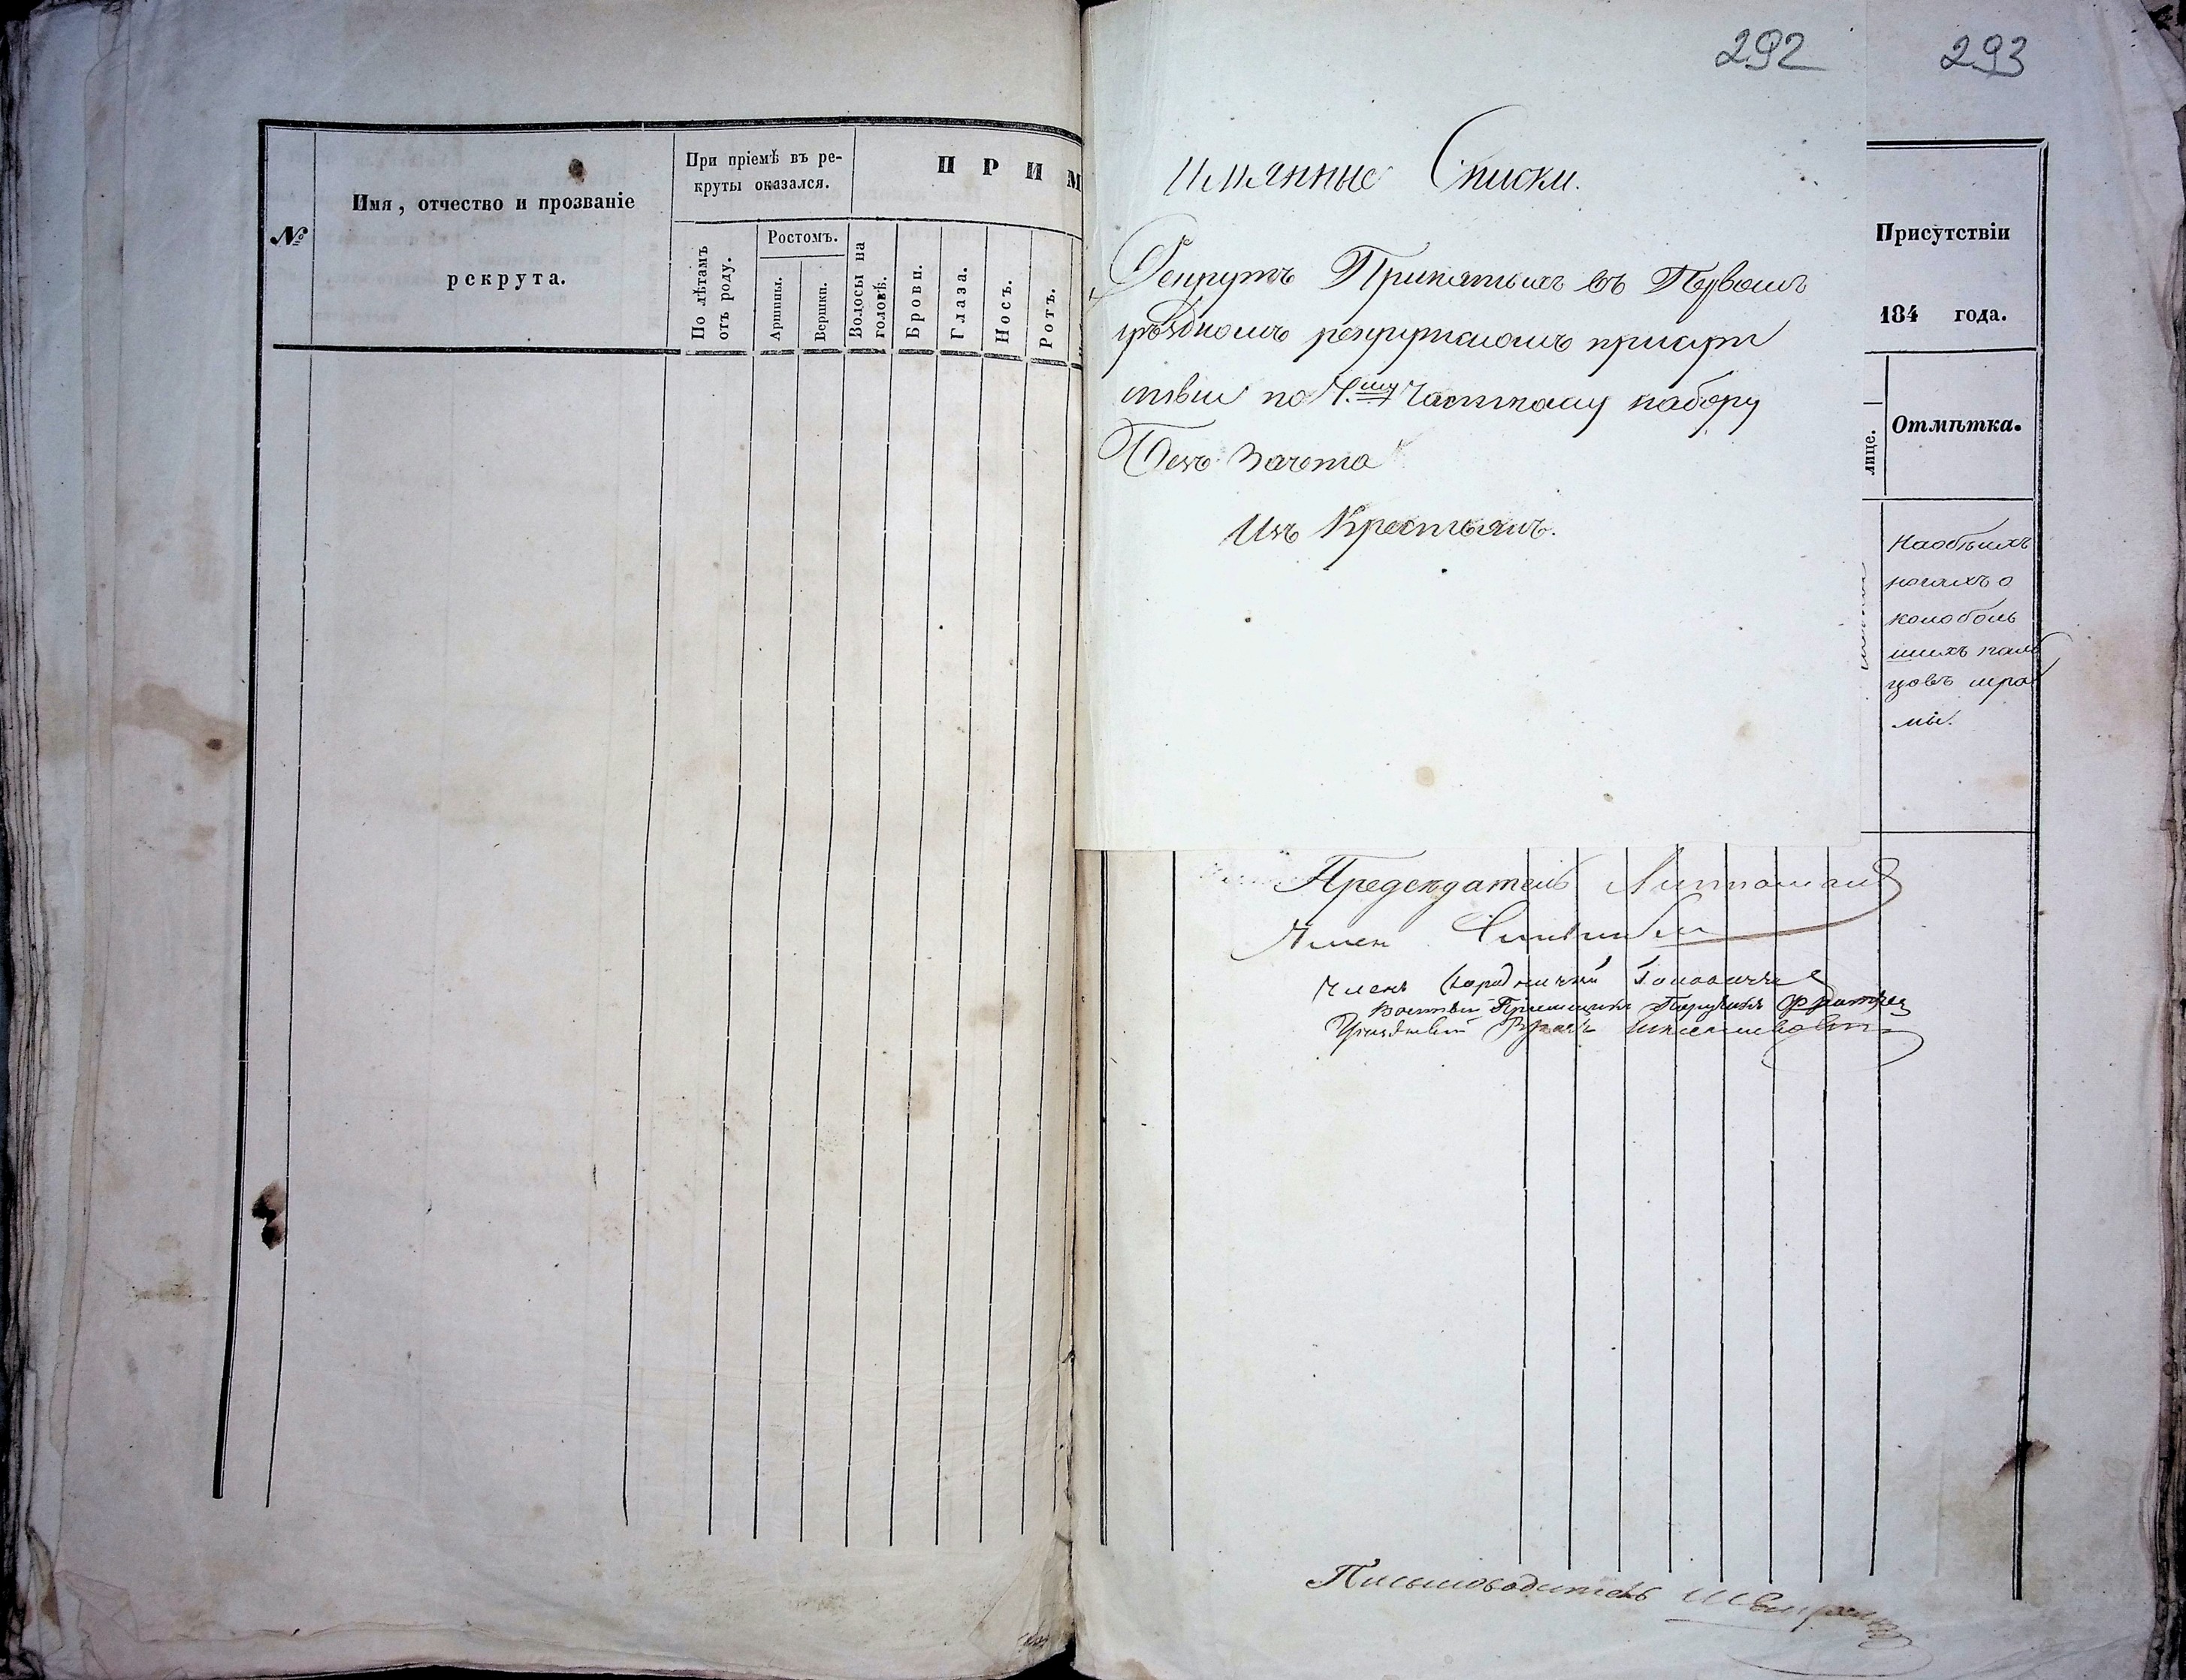 292
293
№
Имя, отчество и прозваніе
рекрута.
При пріемѣ въ ре-
круты оказался.
По лѣтамъ
отъ роду.
Ростомъ.
Аршины.
Вершки.
П Р И М
Волосы на
головѣ.
Брови.
Глаза.
Носъ.
Ротъ.
Имянные Списки.
Рекрутъ Принятыхъ въ Первомъ
уѣздномъ рекрутскомъ присут
ствіи по 4.му Частному набору
Безъ Зачета
Изъ Крестьянъ.
Присутствіи
184 года.
лице.
Отмѣтка.
На обѣихъ
ногахъ о
коло боль
шихъ паль
цовъ шра
мы.
Предсѣдатель
Член
Членъ Городничій
Военный Пріемщикъ
Уѣздный Врачъ
Письмоводитель